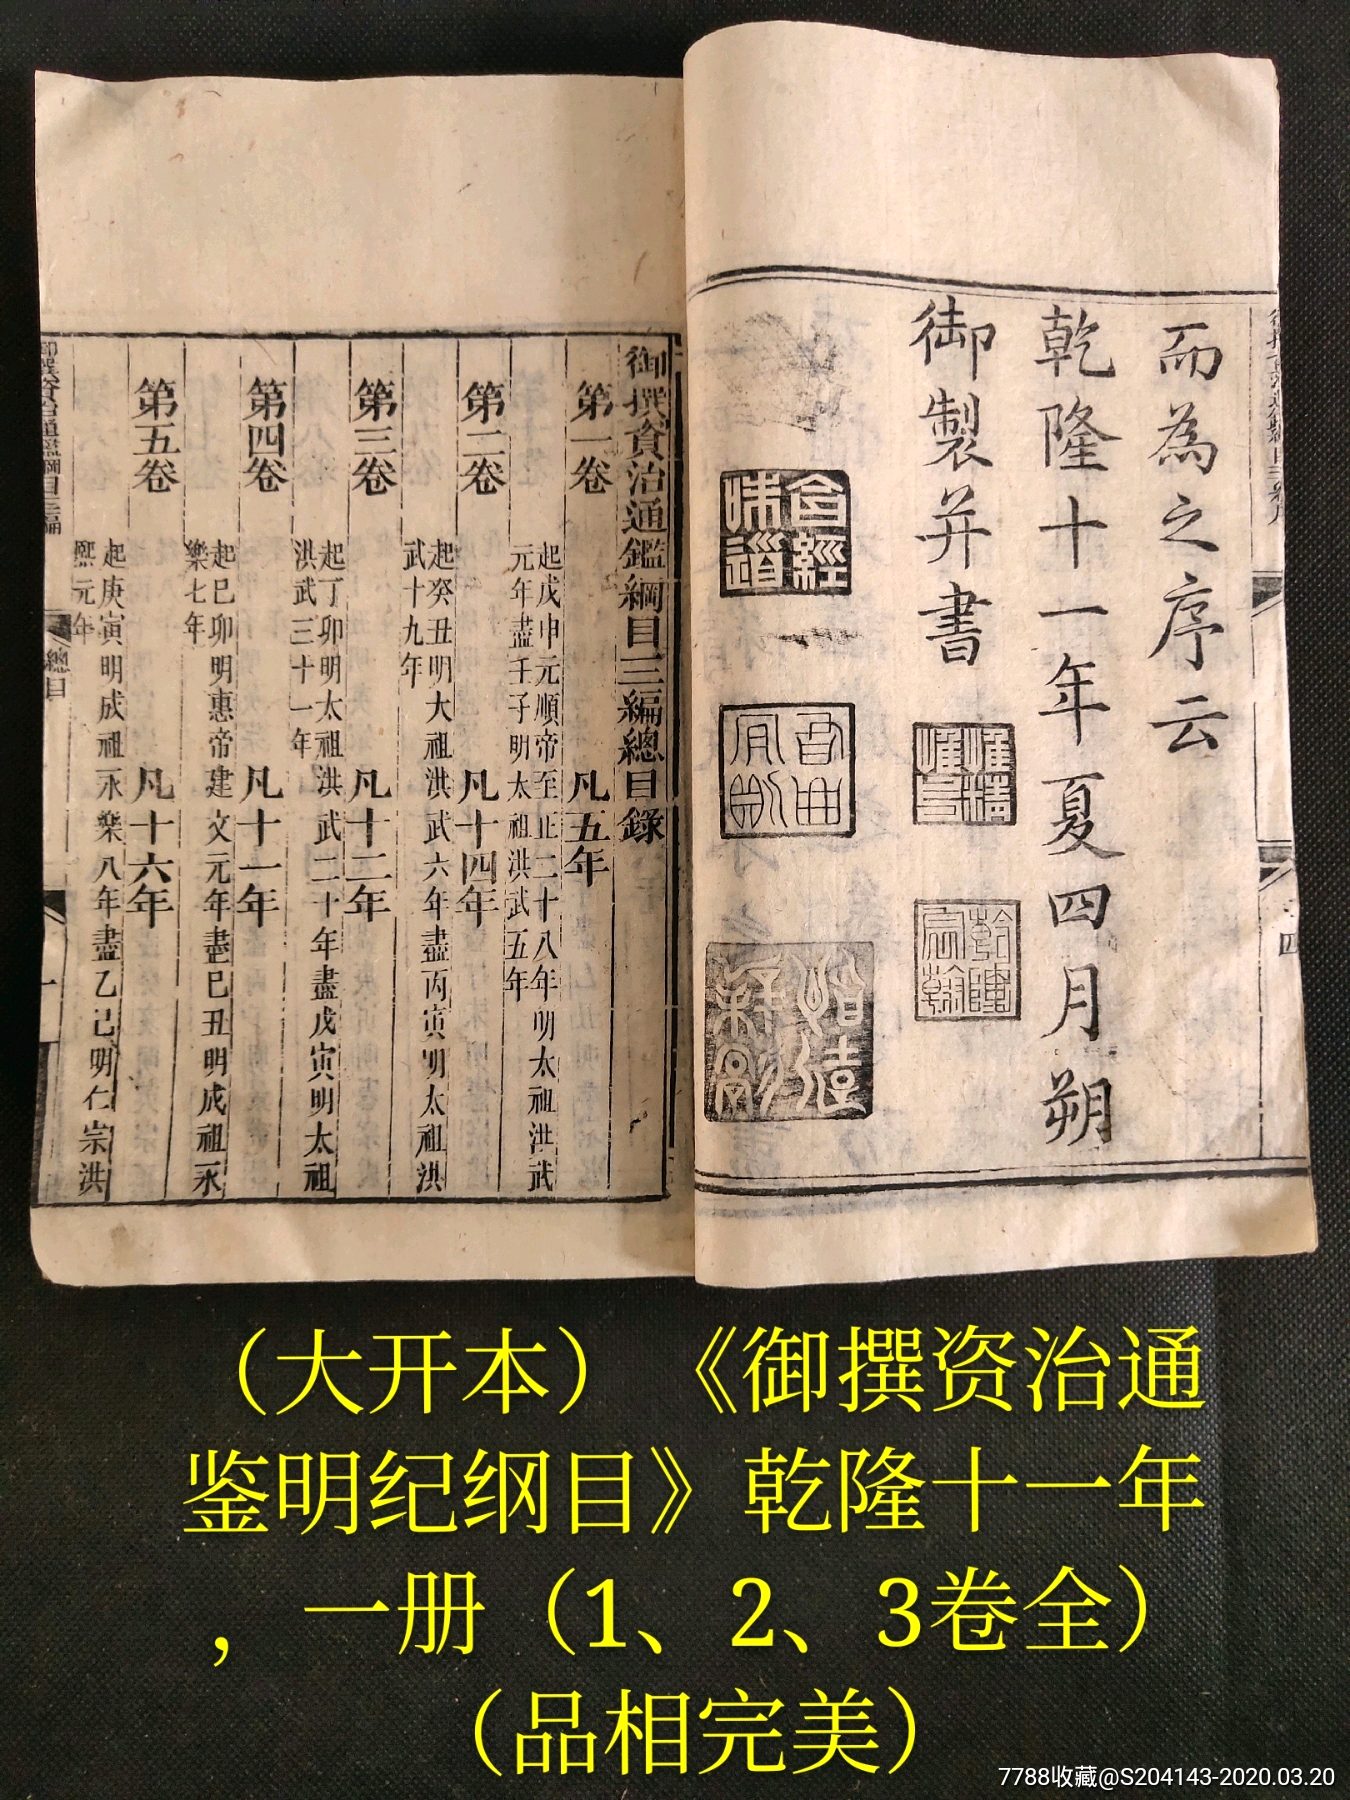 而為之序云
乾隆十一年夏四月朔
御製并書
含經味道
惟精惟一
乾隆宸翰
御撰資治通鑑綱目三編總目錄
第一卷 凡五年
起戊申元順帝至正二十八年明太祖洪武
元年盡壬子明太祖洪武五年
第二卷 凡十四年
起癸丑明太祖洪武六年盡丙寅明太祖洪
武十九年
第三卷 凡十二年
起丁卯明太祖洪武二十年盡戊寅明太祖
洪武三十一年
第四卷 凡十一年
起己卯明惠帝建文元年盡己丑明成祖永
樂七年
第五卷 凡十六年
起庚寅明成祖永樂八年盡乙巳明仁宗洪
熙元年
御撰資治通鑑綱目三編 總目 一
(大开本)《御撰资治通
鉴明纪纲目》乾隆十一年
,一册(1、2、3卷全)
(品相完美)
7788收藏@S204143-2020.03.20